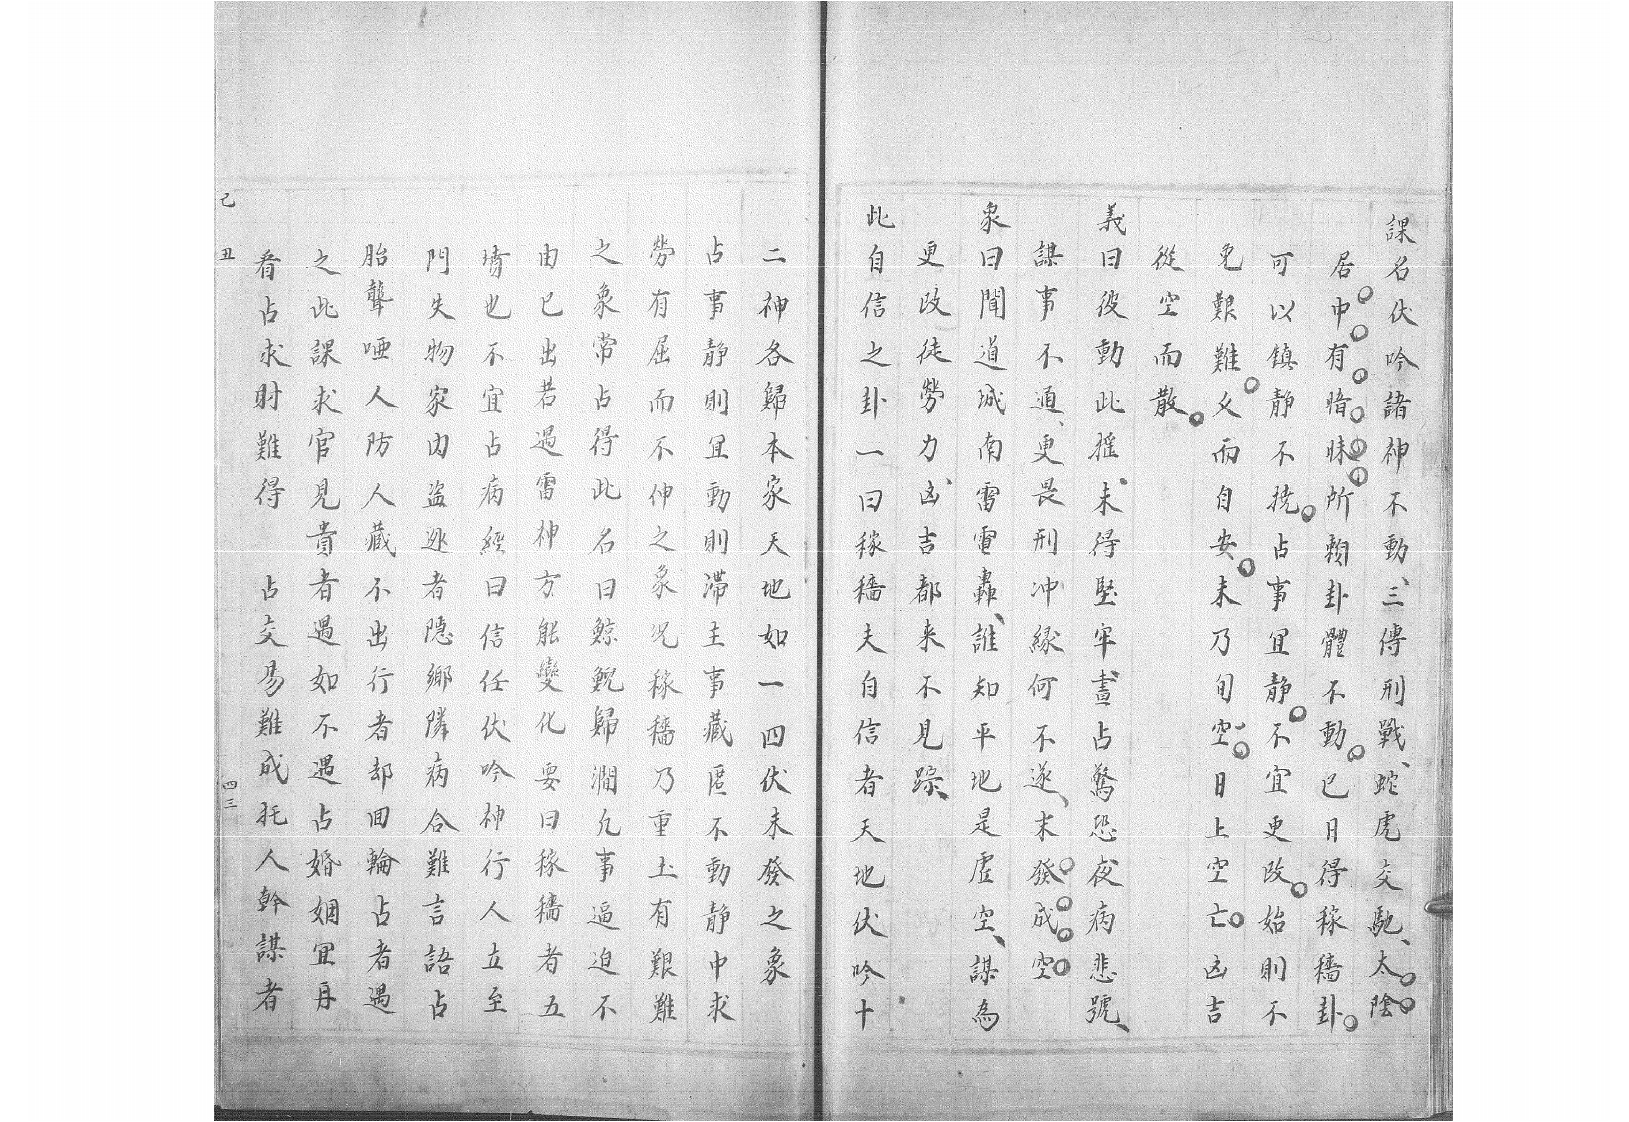 課名伏吟諸神不動三傳刑戰蛇虎交馳太陰
居中有暗昧所賴卦體不動巳日得稼穡卦
可以鎮靜不撓占事宜靜不宜更改始則不
免艱難久而自安未乃旬空日上空亡凶吉
從空而散
義曰彼動此搖未得堅牢晝占驚恐夜病悲號
謀事不通更畏刑冲緣何不遂末發成空
象曰聞道城南雷電轟誰知平地是虛空謀為
更改徒勞力凶吉都來不見踪
此自信之卦一曰稼穡夫自信者天地伏吟十
二神各歸本家天地如一四伏未發之象
占事靜則宜動則滯主事藏匿不動靜中求
勞有屈而不伸之象况稼穡乃重土有艱難
之象常占得此名曰鯨鯢歸澗凡事逼迫不
由已出若遇雷神方能變化要曰稼穡者五
墳也不宜占病經曰信任伏吟神行人立至
門失物家内盜逃者隐鄉隣病合難言語占
胎聾啞人防人藏不出行者却囬輪占者遇
之此課求官見貴者遇如不遇占婚姻宜再
看占求財難得 占交易難成托人幹謀者
己丑
四三